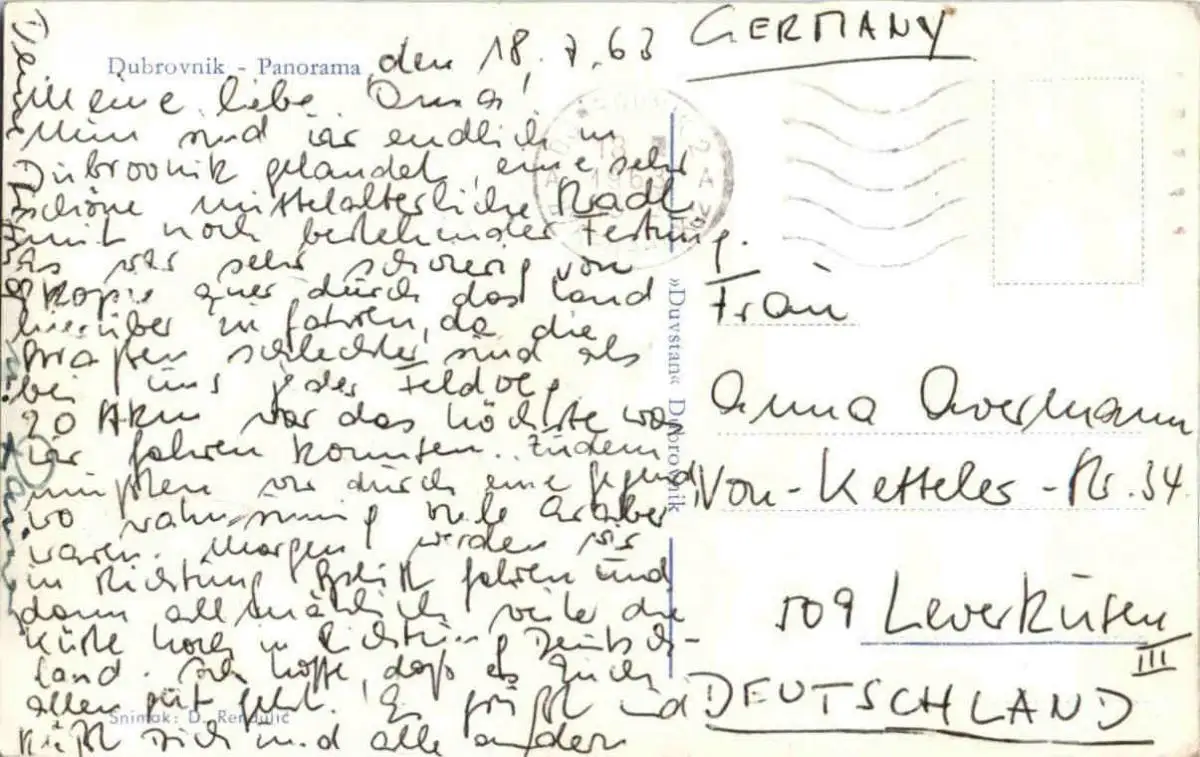 Dubrovnik - Panorama
den 18.7.63
Meine liebe Oma!
Nun sind wir endlich in
Dubrovnik gelandet, eine sehr
schöne mittelalterliche Stadt
mit noch bestehender Festung.
Es war sehr schwierig von
Skopje quer durch das Land
hierüber zu fahren, da die
Straßen schlechter sind als
bei uns jeder Feldweg.
20 Akm war das höchste was
wir fahren konnten. Zudem
mußten wir durch eine Gegend,
wo wahnsinnig viele Araber
waren. Morgen werden wir
in Richtung Split fahren und
dann allmählich weiter die
Küste hoch in Richtung Deutsch-
land. Ich hoffe, daß es Euch
allen gut geht. Es grüßt und
küßt Dich und alle andern
Deine
Snimak: D. Rendulić
»Duvstan« Dubrovnik
18 1963
GERMANY
Frau
Anna Avermann
Von-Ketteler-Str. 34
509 Leverkusen
III
DEUTSCHLAND